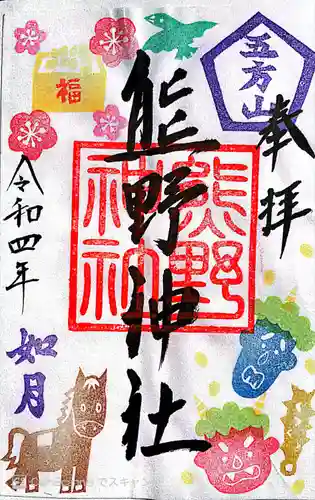 奉拝
五方山
熊野神社
熊野
神社
福
令和
令和四年
如月
でスキャン